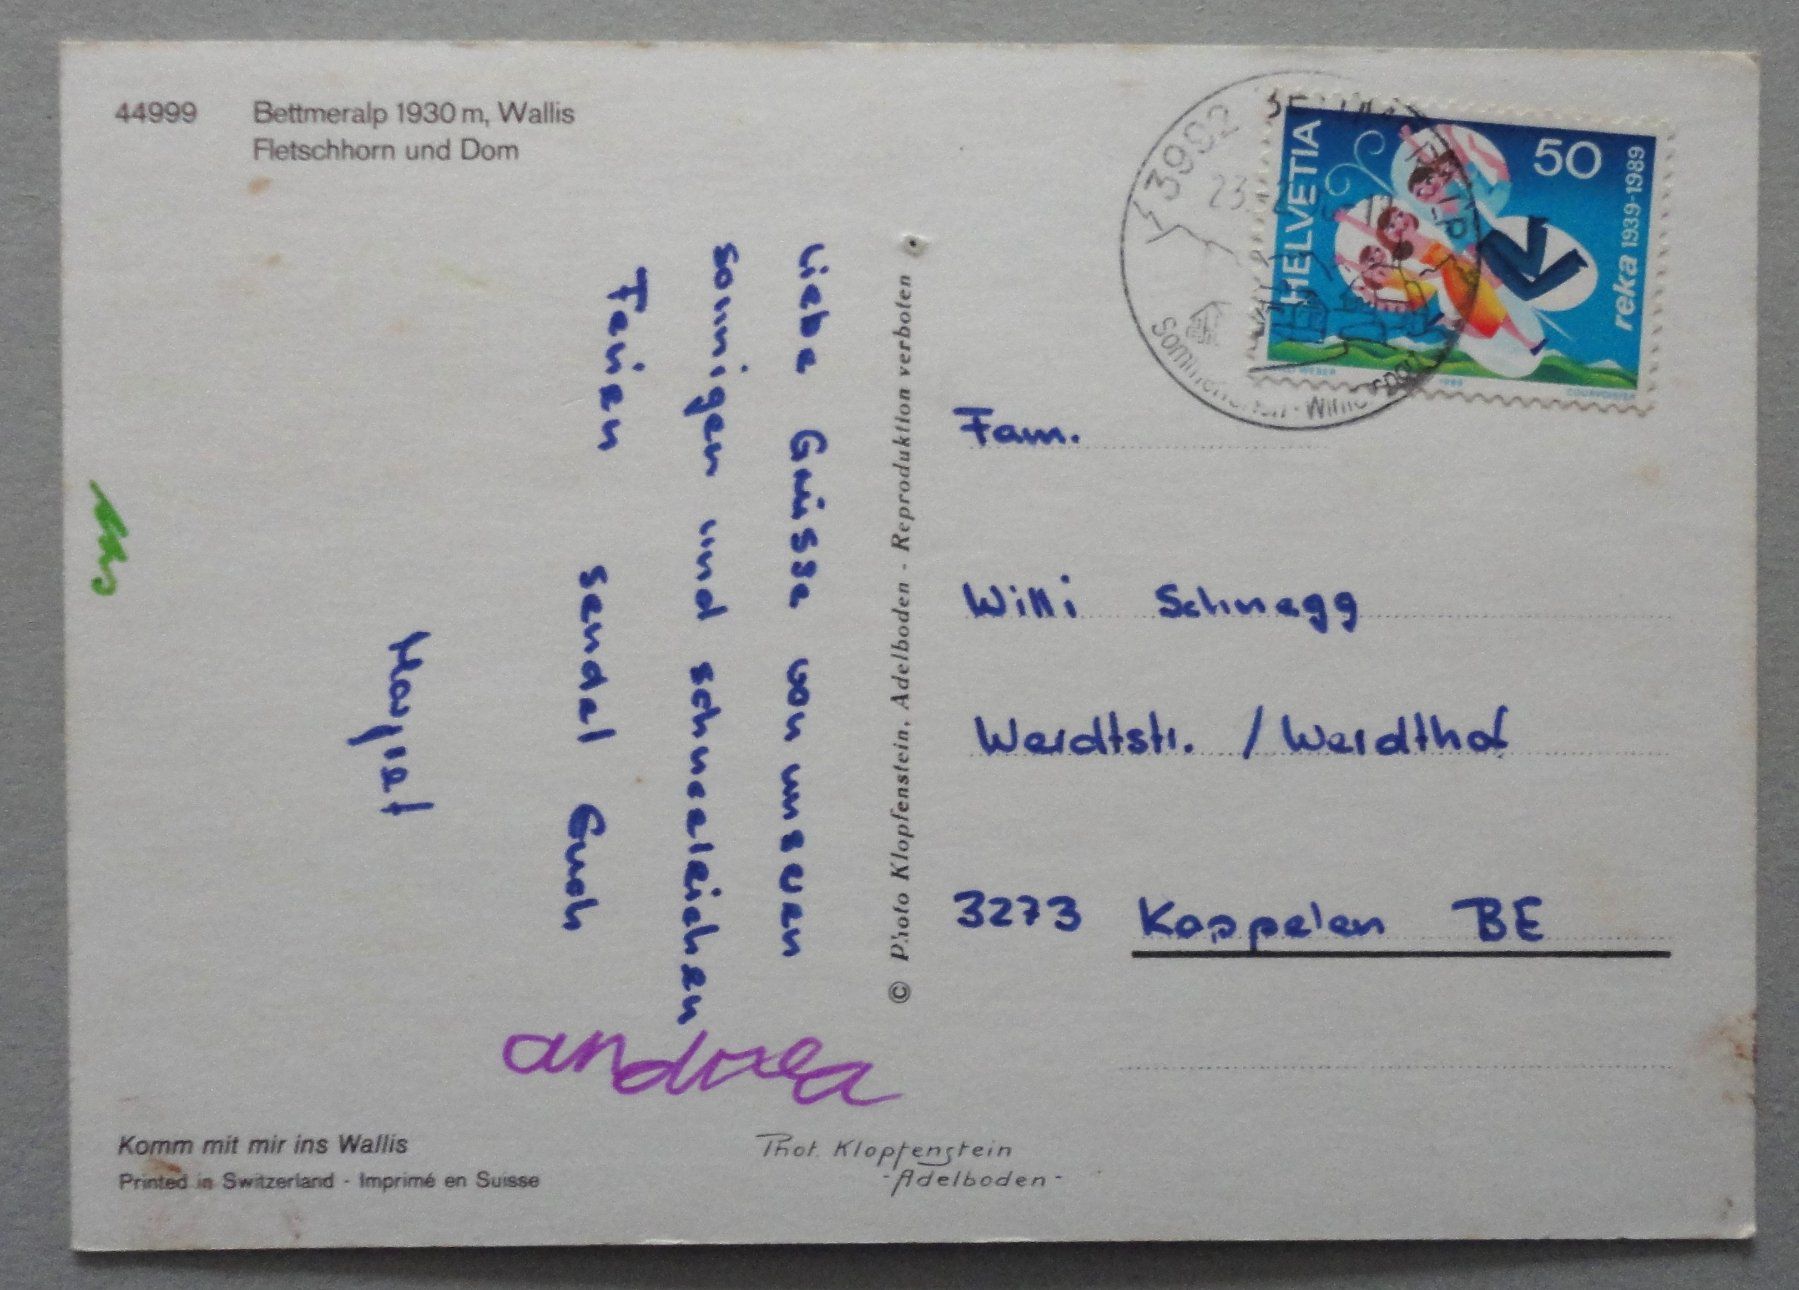 44999 Bettmeralp 1930 m, Wallis
Fletschhorn und Dom
Liebe Grüsse von unseren
sonnigen und schneereichen
Ferien sendet Euch
Margret
andrea
© Photo Klopfenstein, Adelboden - Reproduktion verboten
3992
23.
HELVETIA
50
reka 1939-1989
1989
COURVOISIER
Fam.
Willi Schnegg
Werdtstr. / Werdthof
3273 Kappelen BE
Komm mit mir ins Wallis
Printed in Switzerland - Imprimé en Suisse
Phot. Klopfenstein
- Adelboden -